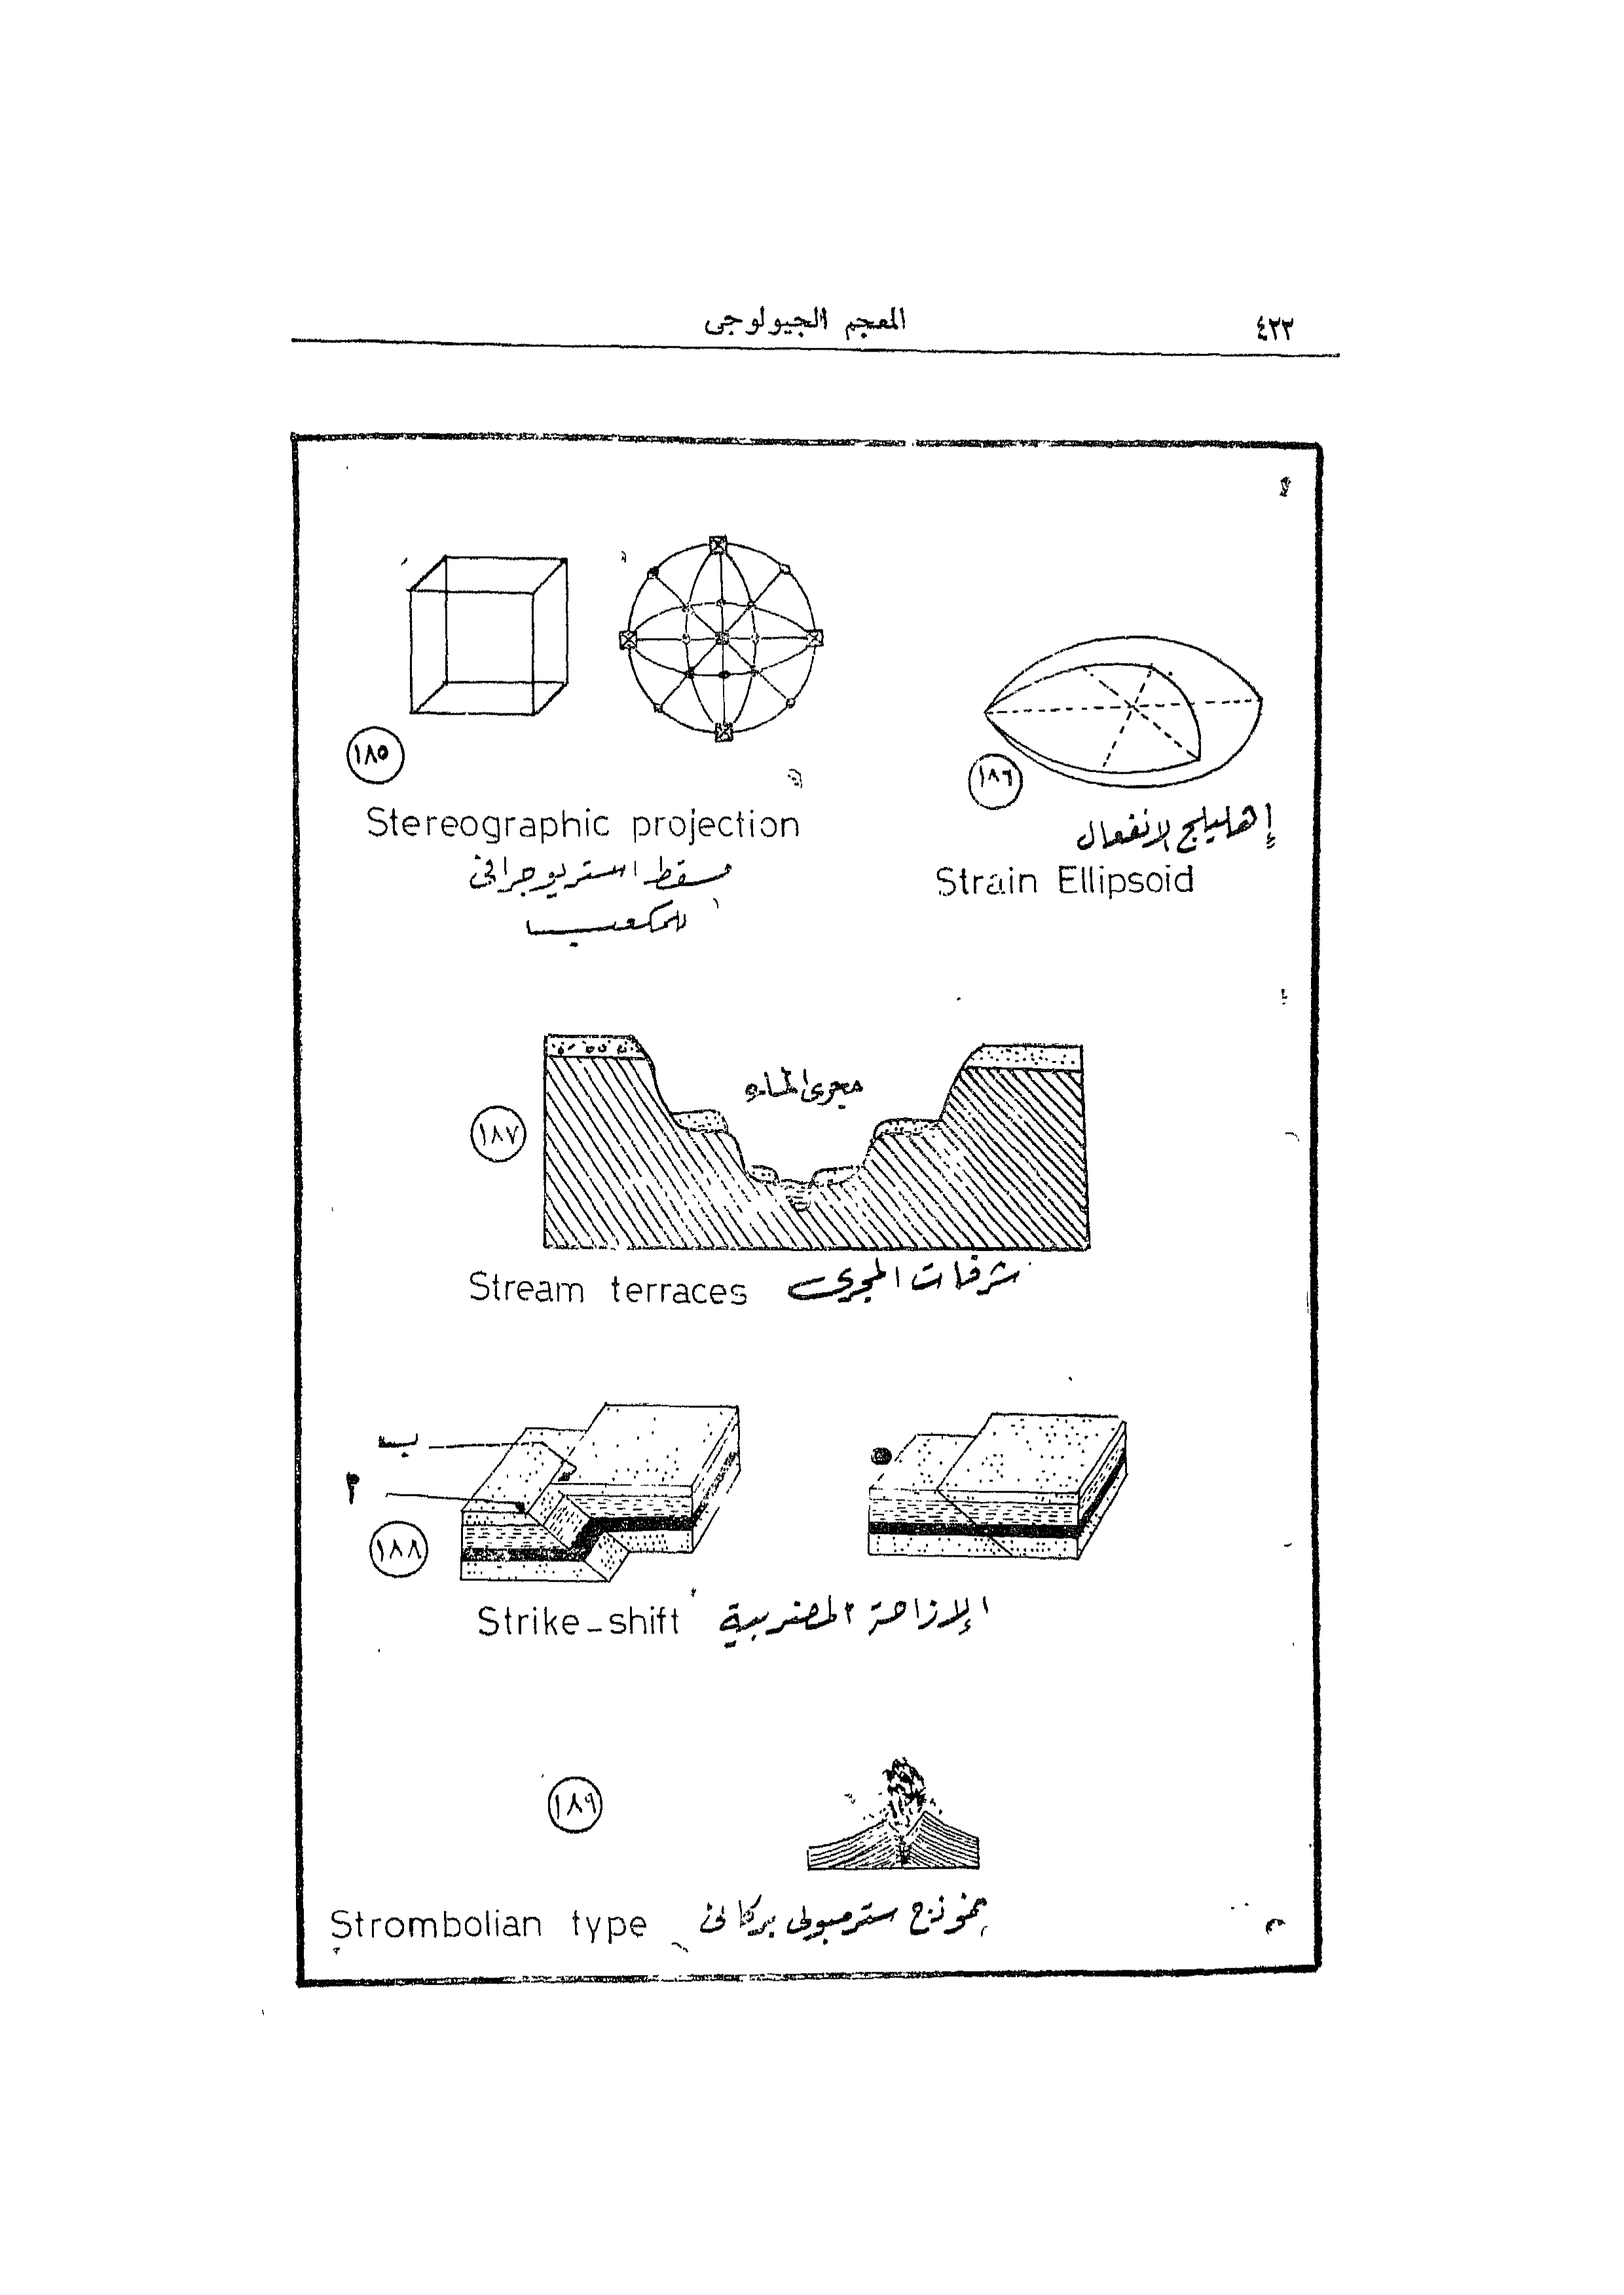 المعجم الجيولوجى
٤٢٢
١٨٥
Stereographic projection
مسقط استريوجرافى
للمكعب
١٨٦
إهليلج الانفعال
Strain Ellipsoid
مجرى الماء
١٨٧
Stream terraces شرفات المجرى
ب
أ
١٨٨
Strike-shift الإزاحة المضربية
١٨٩
Strombolian type نموذج سترمبولى بركانى